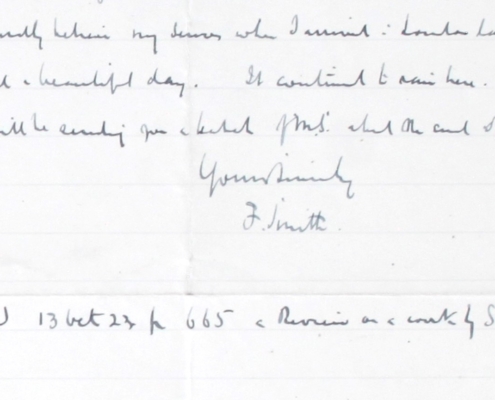 my senses when I arrived in London
a beautiful day. It continues to rain here.
be sending you a batch of MS. about the end
Yours sincerely
F. Smith.
13 Oct 23 p 665 a Review on a work by S